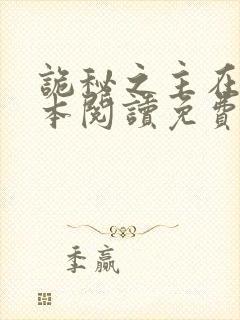 詭秘之主在
本閱讀免費
季贏